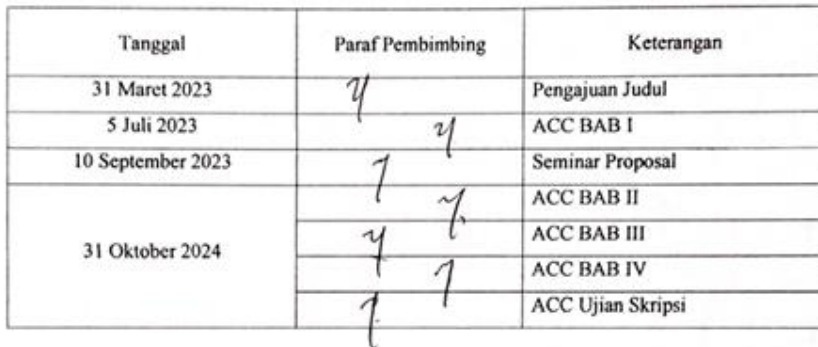 Tanggal Paraf Pembimbing Keterangan
31 Maret 2023 Pengajuan Judul
5 Juli 2023 ACC BAB I
10 September 2023 Seminar Proposal
31 Oktober 2024 ACC BAB II
ACC BAB III
ACC BAB IV
ACC Ujian Skripsi